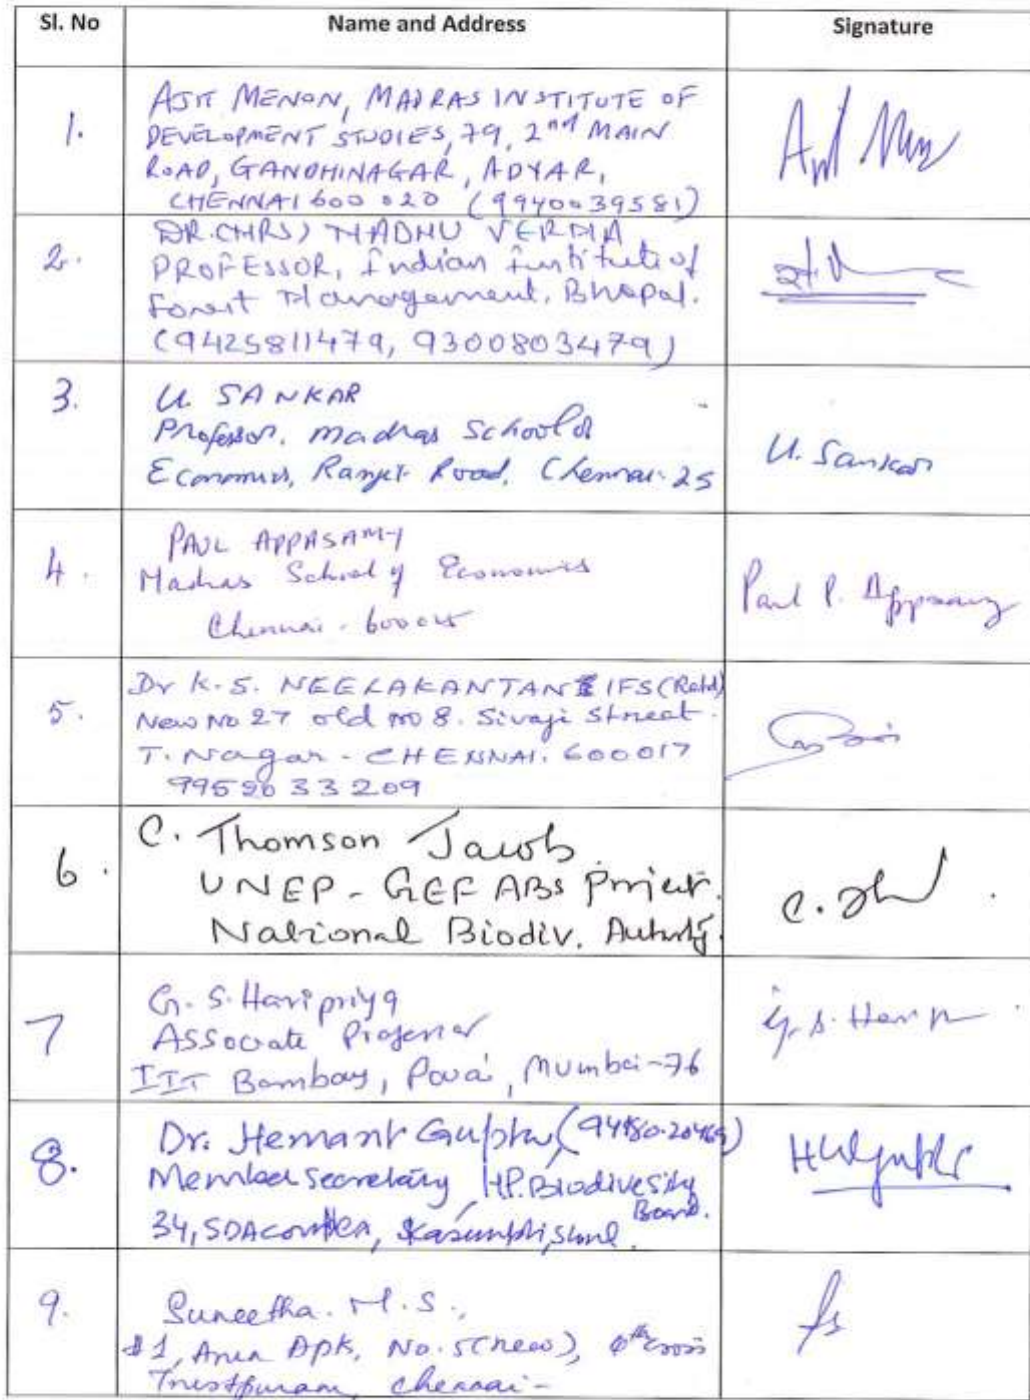 Sl. No Name and Address Signature
1. AJIT MENON, MADRAS INSTITUTE OF
DEVELOPMENT STUDIES, 79, 2nd MAIN
ROAD, GANDHINAGAR, ADYAR,
CHENNAI 600 020 (9940039581)
2. DR. (MRS) MADHU VERMA
PROFESSOR, Indian Institute of
Forest Management, Bhopal.
(9425811479, 9300803479)
3. U. SANKAR
Professor, Madras School of
Economics, Ranjit Road, Chennai-25
U. Sankar
4. PAUL APPASAMY
Madras School of Economics
Chennai - 600025
Paul P. Appasamy
5. Dr K. S. NEELAKANTAN IFS (Retd)
New No 27 old no 8. Sivaji Street.
T. Nagar - CHENNAI. 600017
33209
6. C. Thomson Jacob
UNEP - GEF ABS Project.
National Biodiv. Authority.
C.
7 G. S. Haripriya
Associate Professor
IIT Bombay, Powai, Mumbai-76
G. S. Hari
8. Dr. Hemant Gupta (
Member Secretary, HP. Biodiversity
Board.
34, SDA Complex, Kasumpti,
HKGupta
9. Suneetha. M. S.,
#1, Apt, No. 5 (new), cross
Trustpuram, Chennai -